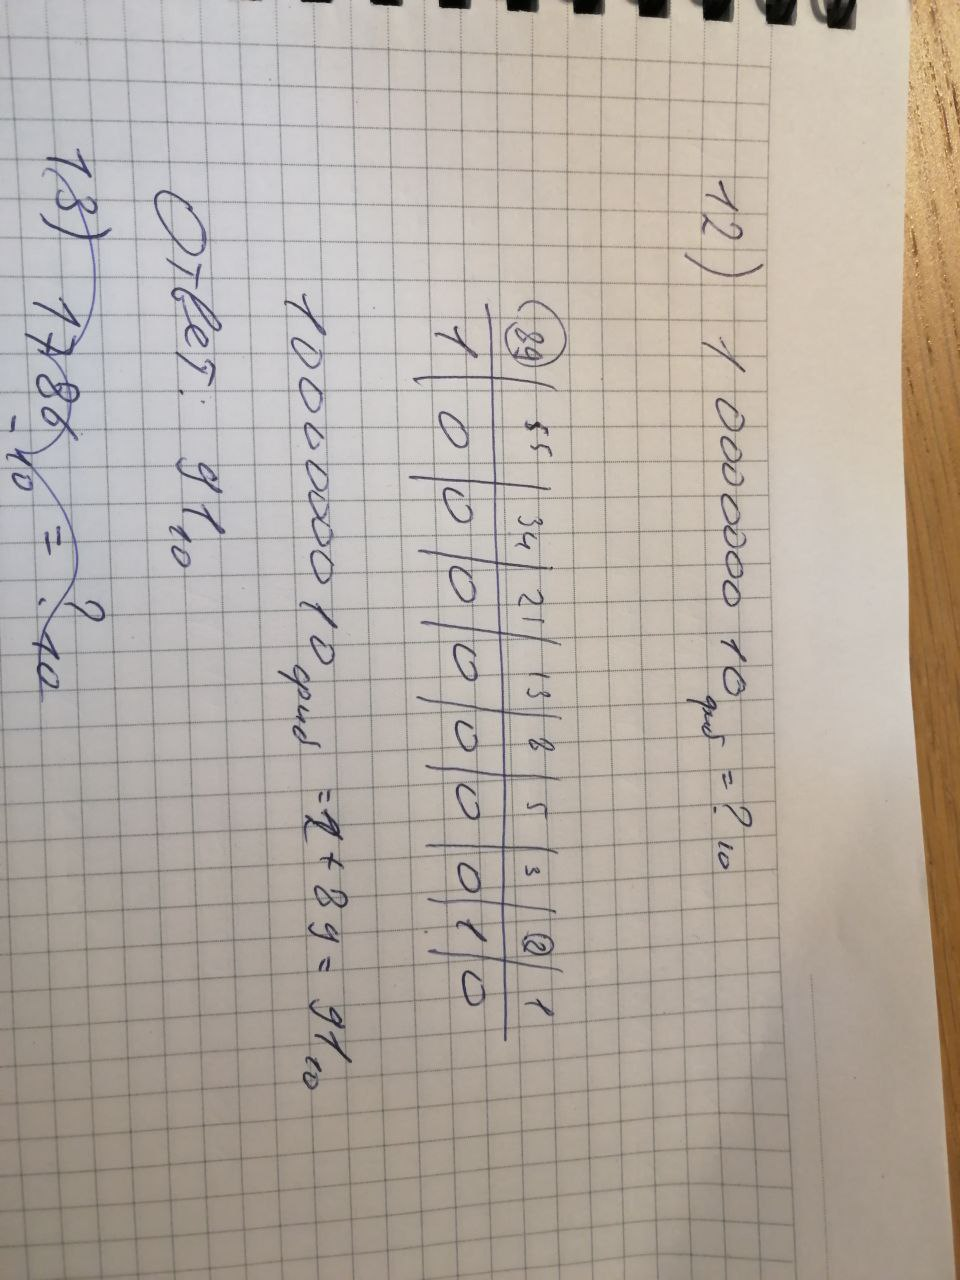 12) 1000000010фиб = ?10
89 | 55 | 34 | 21 | 13 | 8 | 5 | 3 | 2 | 1
1 | 0 | 0 | 0 | 0 | 0 | 0 | 0 | 1 | 0
1000000010фиб = 2 + 89 = 9110
Ответ: 9110
13) 1786-10 = ?10